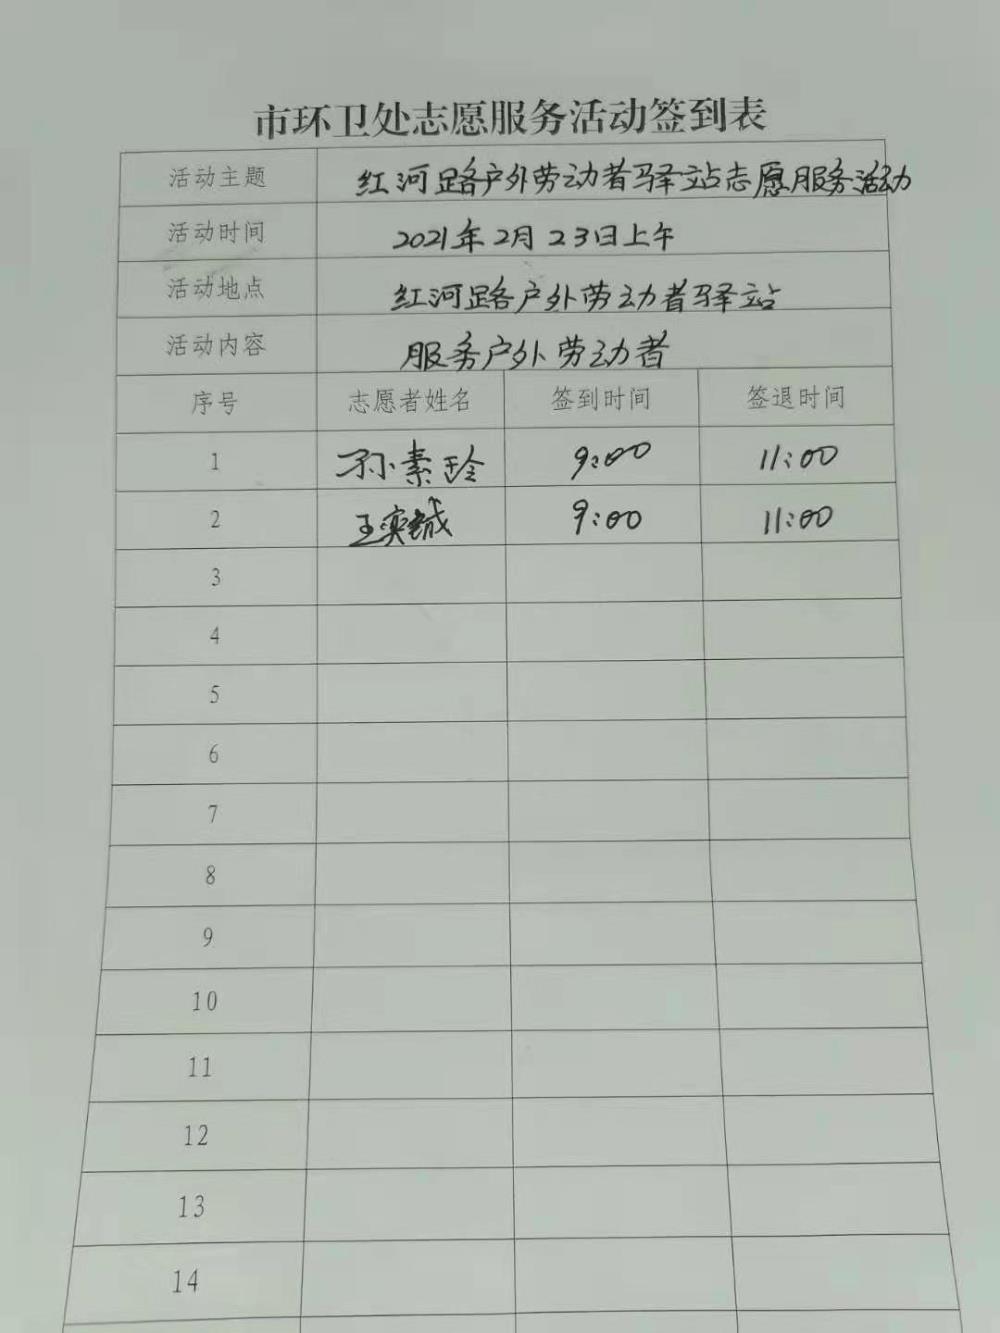 市环卫处志愿服务活动签到表
活动主题 红河路户外劳动者驿站志愿服务活动
活动时间 2021年2月23日上午
活动地点 红河路户外劳动者驿站
活动内容 服务户外劳动者
序号 志愿者姓名 签到时间 签退时间
1 孙素玲 9:00 11:00
2 王奕铖 9:00 11:00
3
4
5
6
7
8
9
10
11
12
13
14